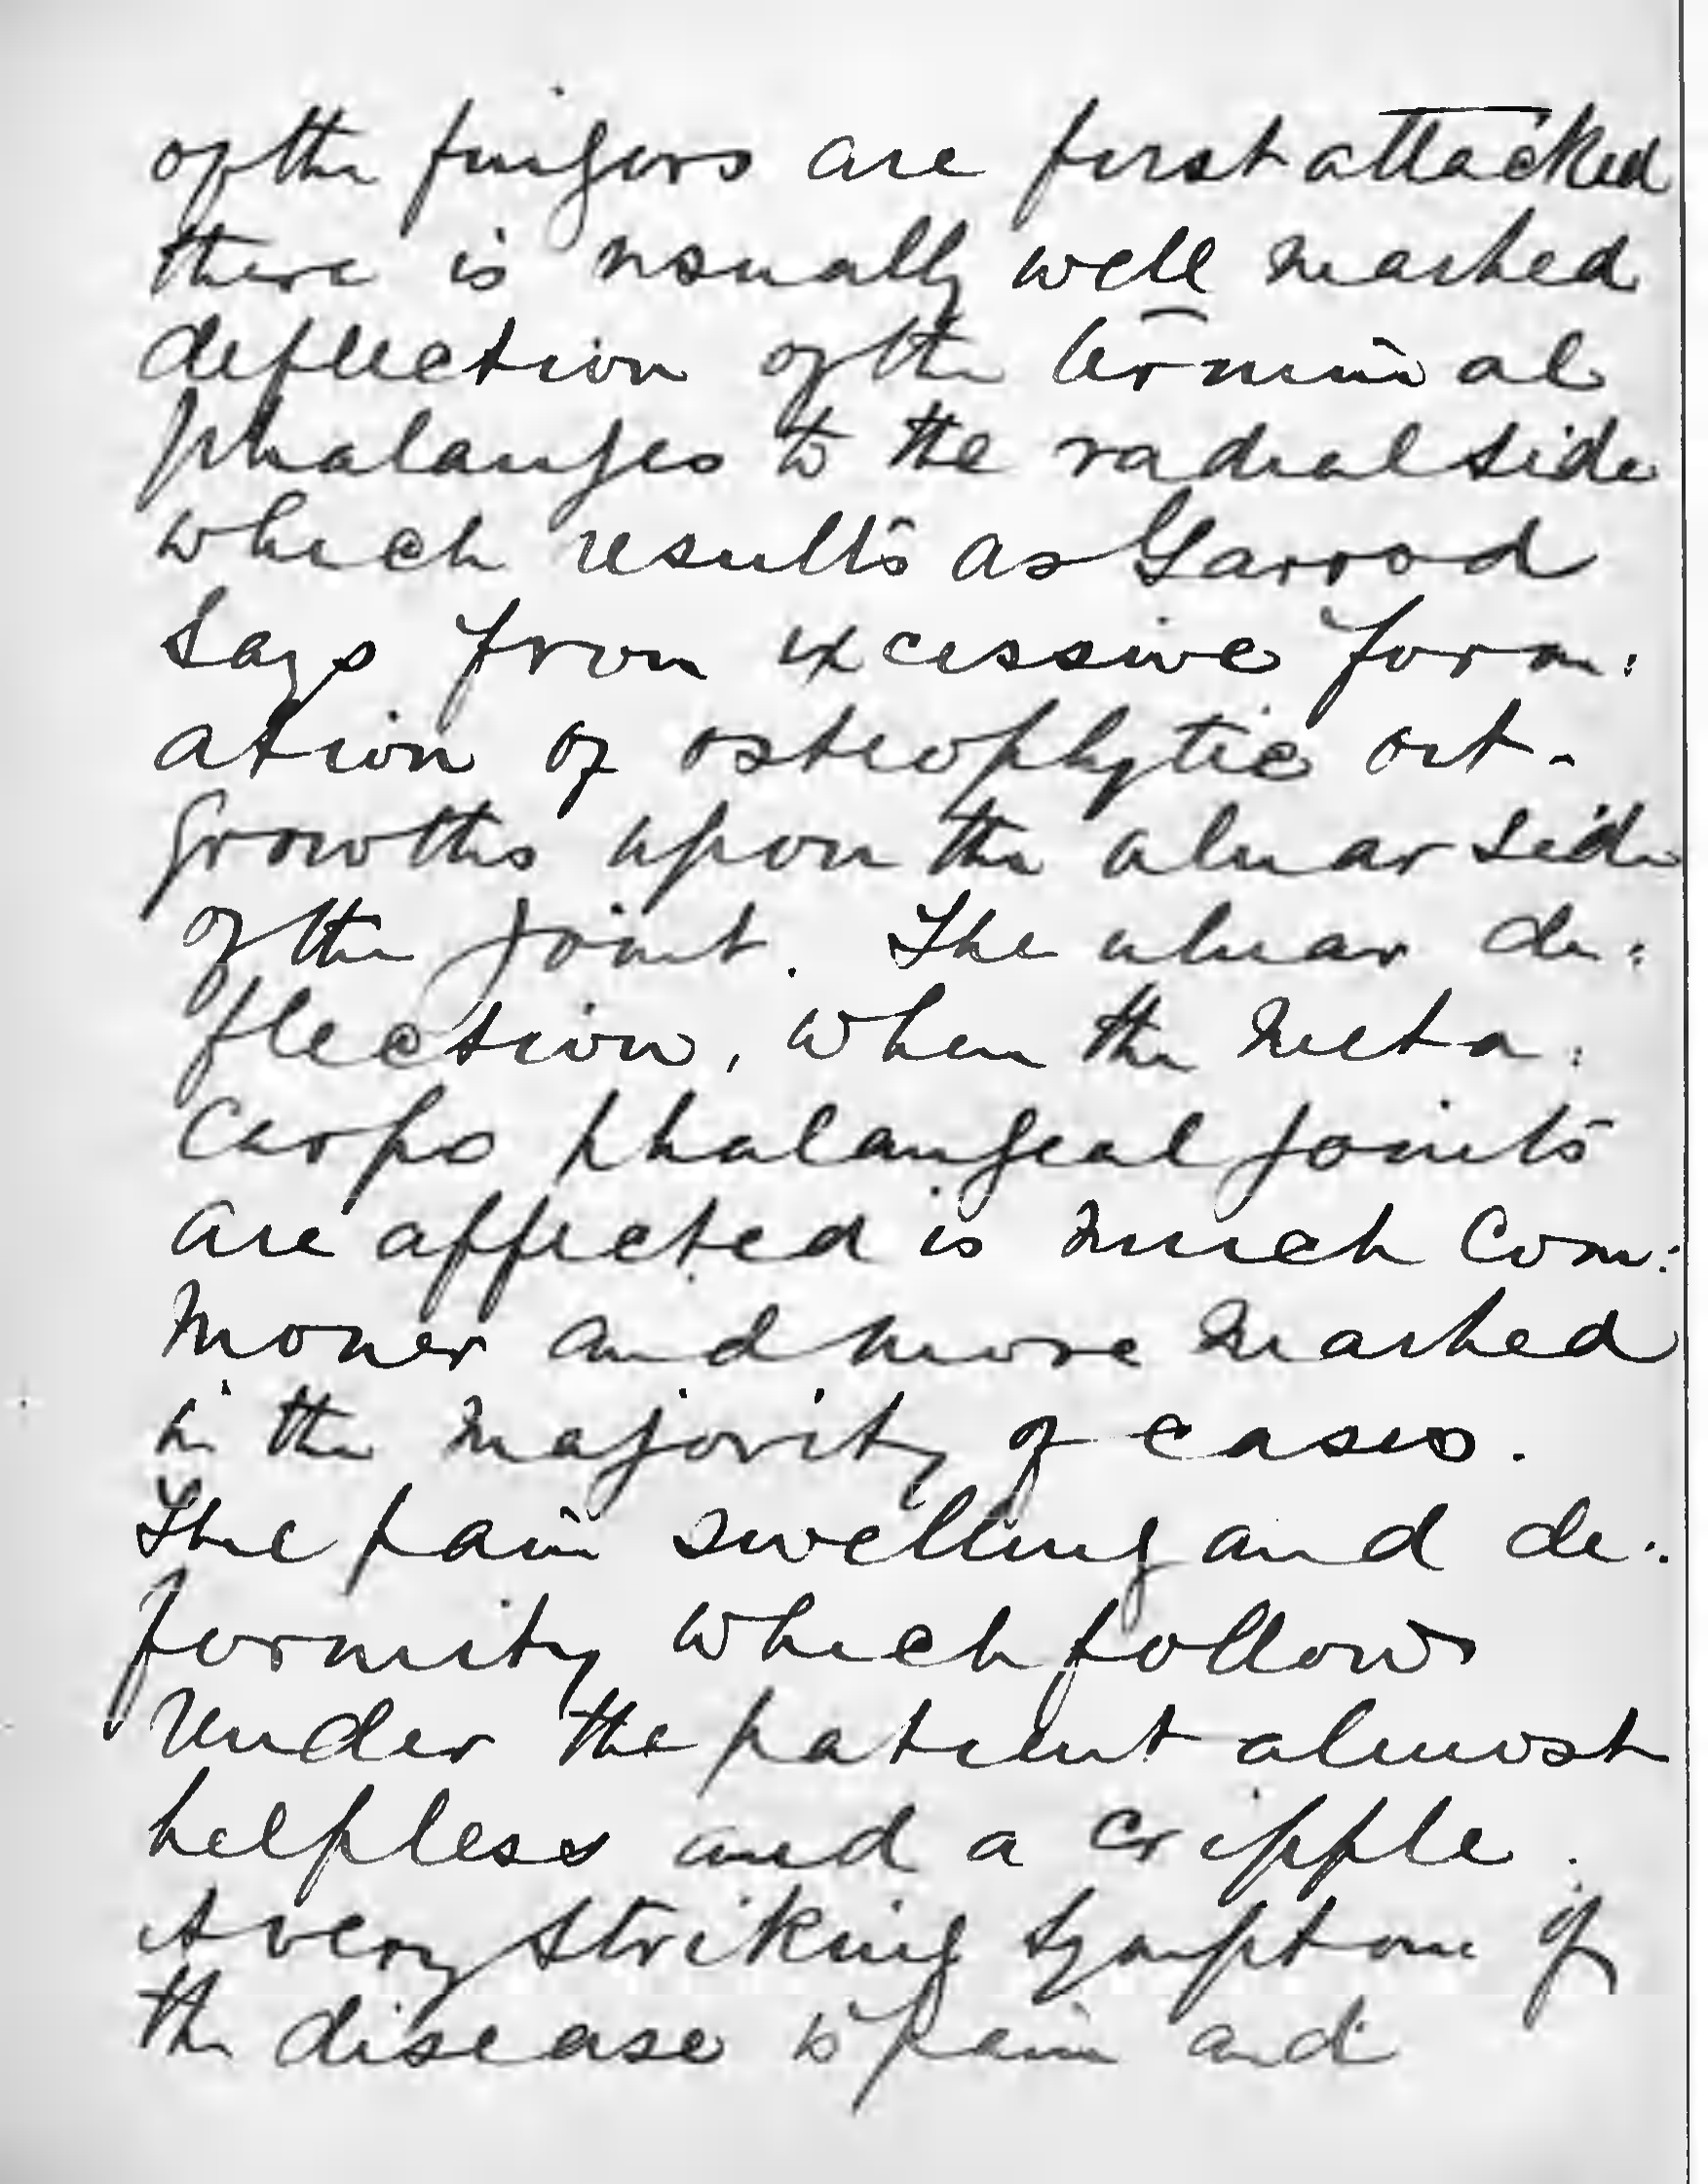 of the fingers are first attacked
there is usually well marked
deflection of the terminal
phalanges to the radial side
which results as Garrod
says from excessive form:
ation of osteophytic out-
growths upon the ulnar side
of the joint. The ulnar de:
flection, when the meta:
carpo phalangeal joints
are affected is much com:
moner and more marked
in the majority of cases.
The pain swelling and de:
formity which follow
render the patient almost
helpless and a cripple.
A very striking symptom of
the disease is pain and